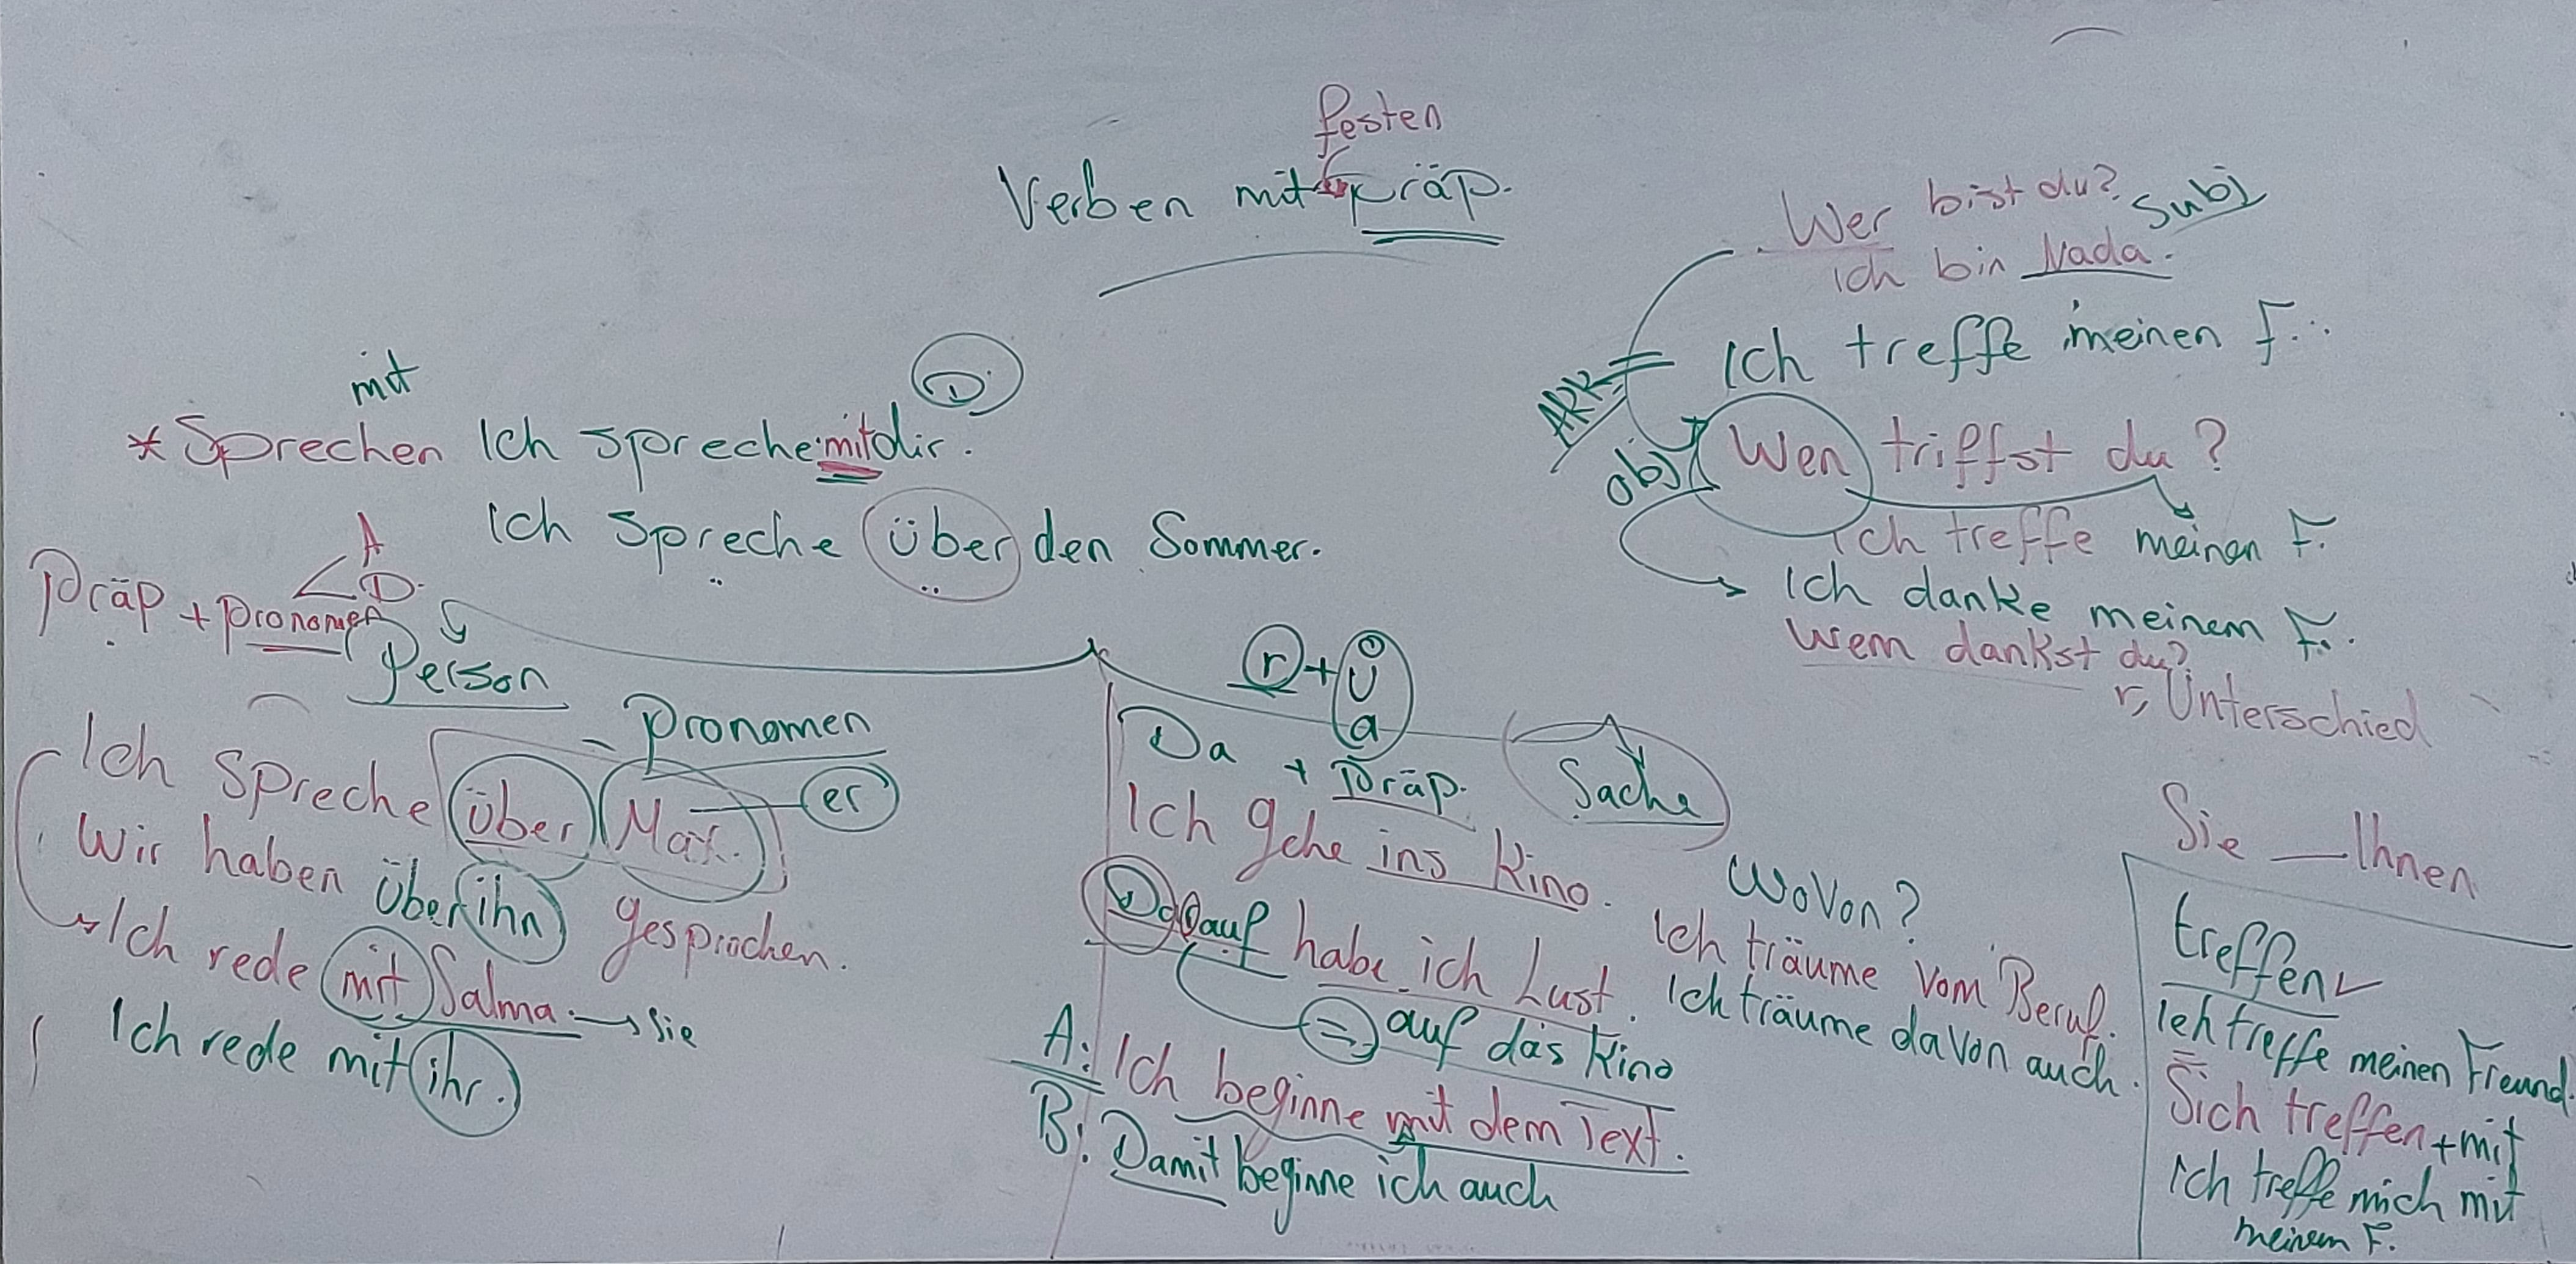 festen
Verben mit Präp.
mit
D.
* Sprechen Ich spreche mit dir.
Ich spreche über den Sommer.
A
D.
Präp + Pronomen
Person
Pronomen
Ich spreche über Max. er
Wir haben über ihn gesprochen.
Ich rede mit Salma. → Sie
Ich rede mit ihr.
r + o
u
a
Da + Präp.
Sache
Ich gehe ins Kino.
Darauf habe ich Lust.
= auf das Kino
Wovon?
Ich träume vom Beruf.
Ich träume davon auch.
A: Ich beginne mit dem Text.
B: Damit beginne ich auch
Wer bist du? Subj
ich bin Nada.
Ich treffe meinen F..
AKK
obj
Wen triffst du?
Ich treffe meinen F.
Ich danke meinem F.
Wem dankst du?
r, Unterschied
Sie — Ihnen
treffen
Ich treffe meinen Freund.
Sich treffen + mit
ich treffe mich mit
meinem F.